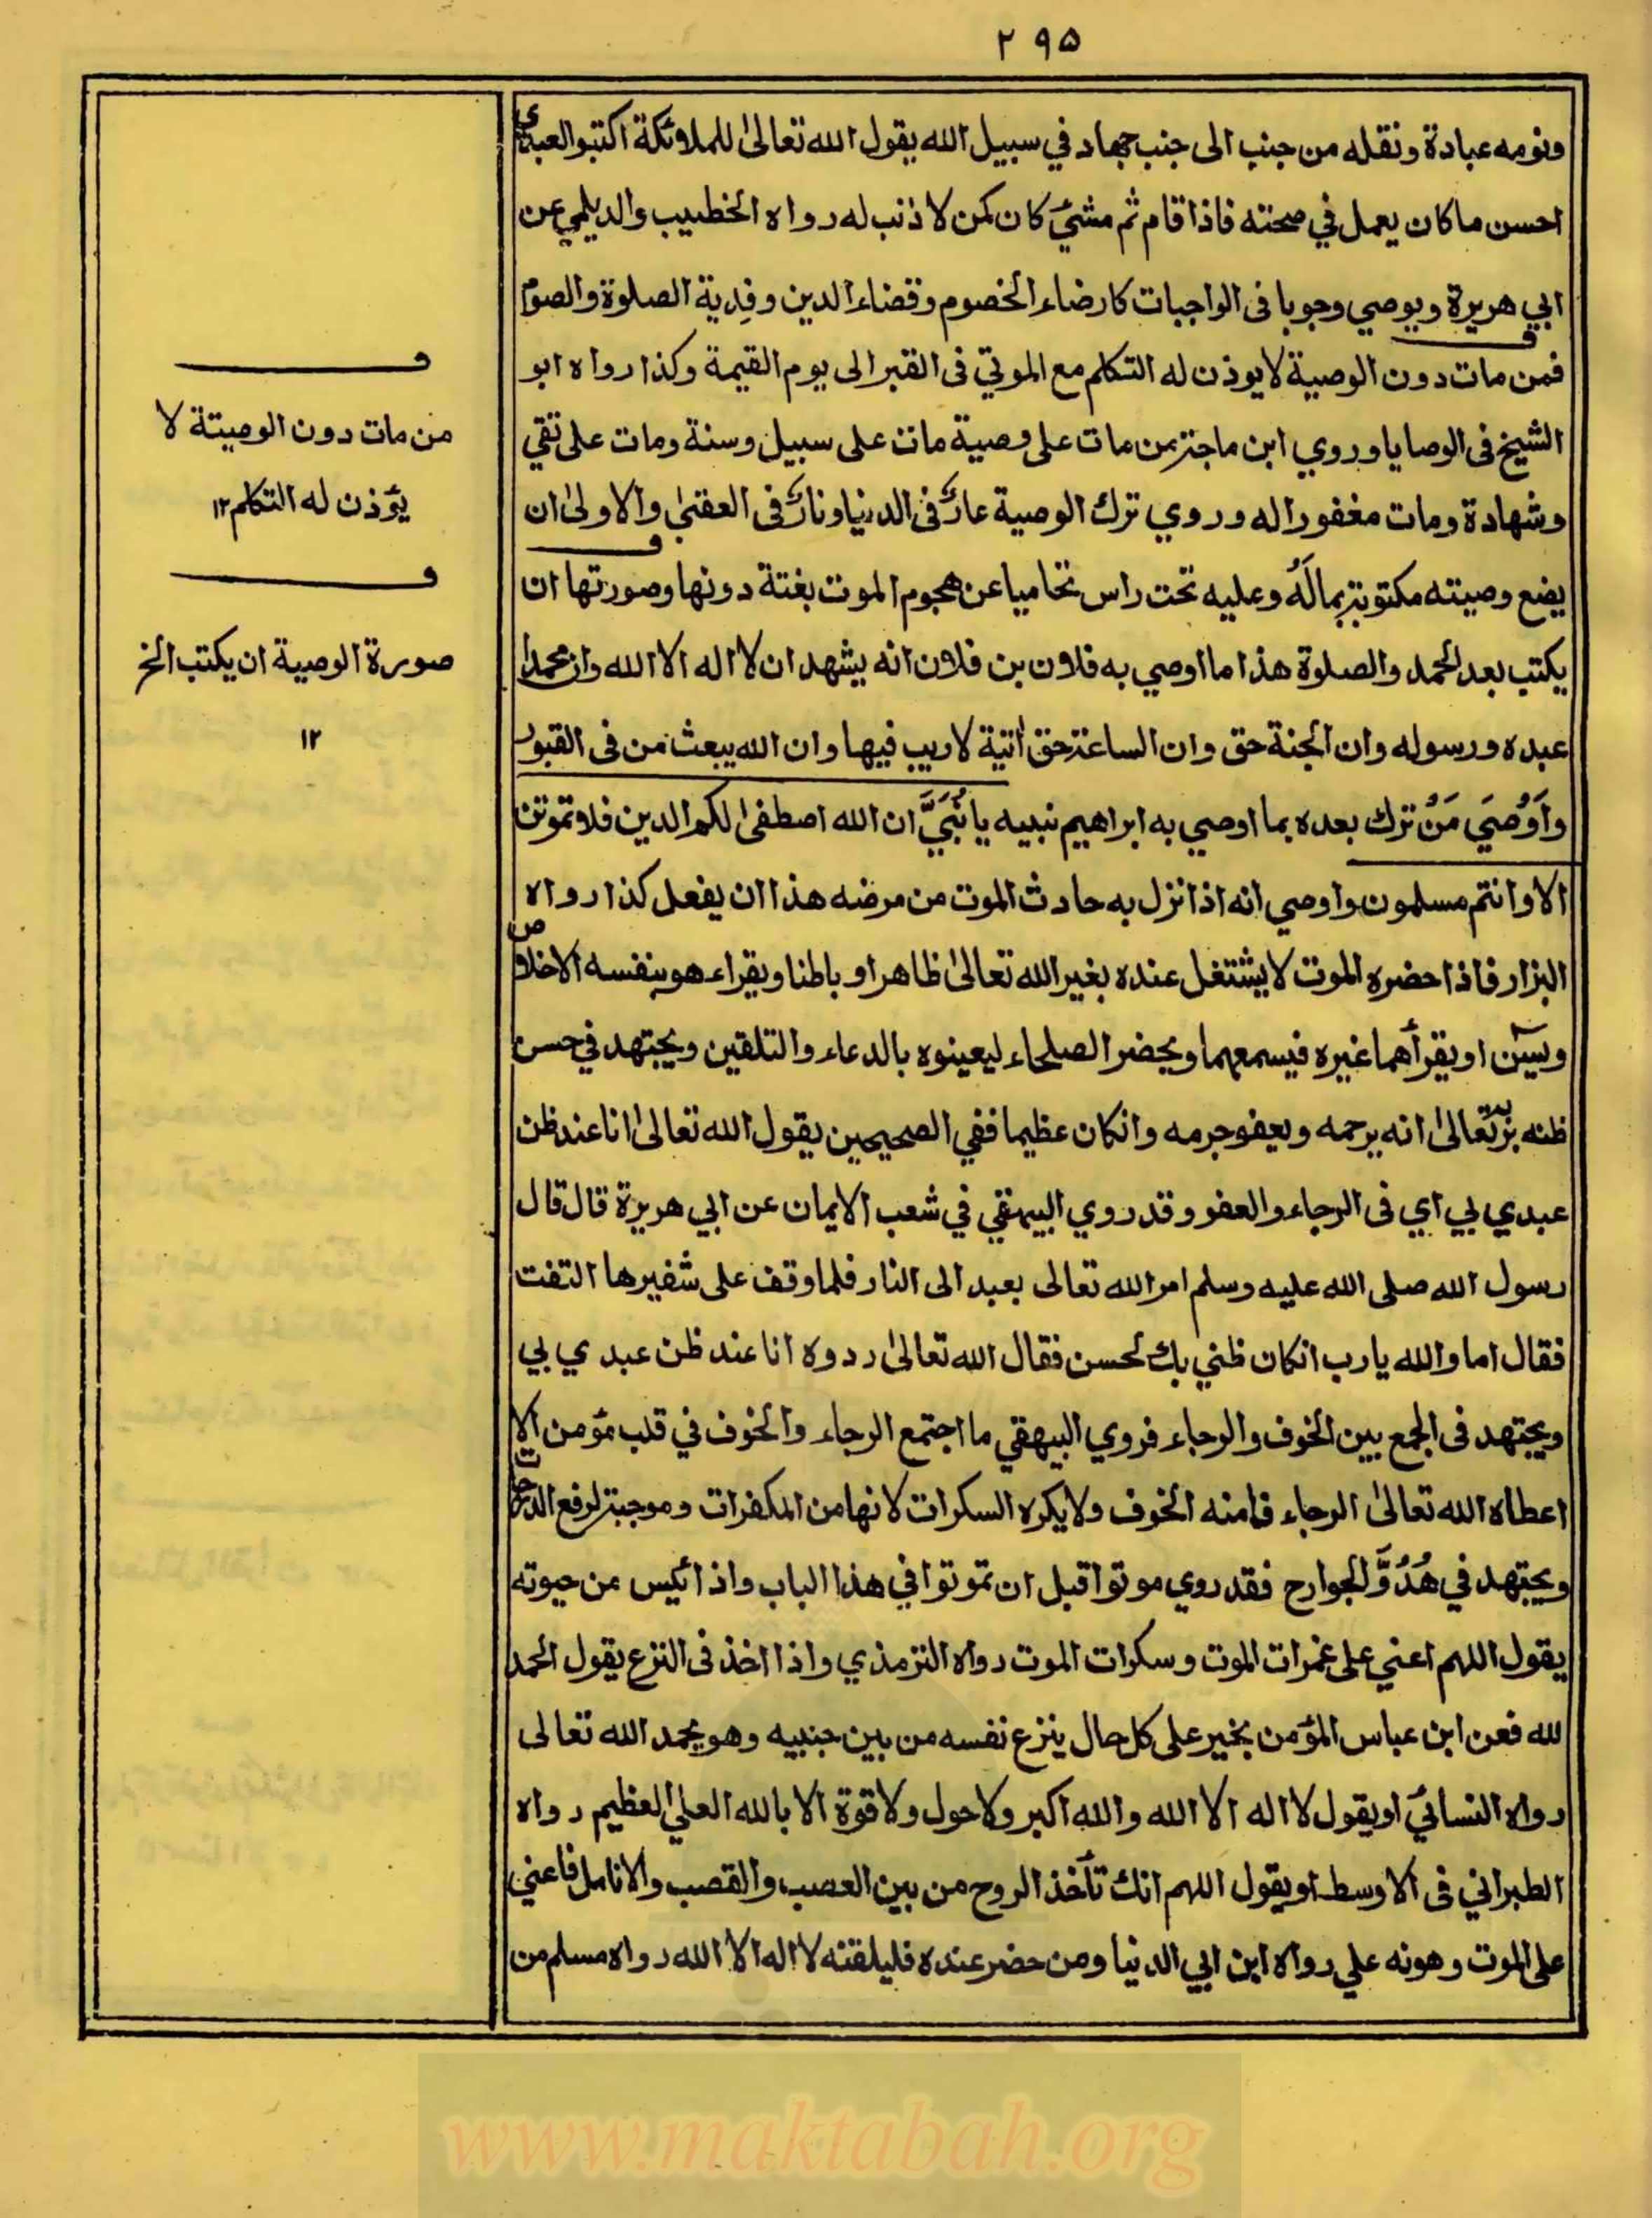 ٢٩٥
ونومه عبادة ونقله من جنب الى جنب جهاد في سبيل الله يقول الله تعالىٰ للملائكة اكتبوا لعبدي
احسن ما كان يعمل في صحته فاذا قام ثم مشيٰ كان كمن لا ذنب له رواه الخطيب والديلمي عن
ابي هريرة ويوصي وجوبا فى الواجبات كارضاء الخصوم وقضاء الدين وفدية الصلوة والصوم
فمن مات دون الوصية لا يوذن له التكلم مع الموتي فى القبر الى يوم القيمة وكذا رواه ابو
الشيخ فى الوصايا وروي ابن ماجة من مات على وصية مات على سبيل وسنة ومات على تقي
وشهادة ومات مغفورا له وروي ترك الوصية عارٌ فى الدنيا ونارٌ فى العقبىٰ والاولىٰ ان
يضع وصيته مكتوبة بما لَهُ وعليه تحت راس تحاميا عن هجوم الموت بغتة دونها وصورتها ان
يكتب بعد الحمد والصلوة هذا ما اوصي به فلان بن فلان انه يشهد ان لا اله الا الله وان محمدا
عبده ورسوله وان الجنة حق وان الساعة حق اٰتية لا ريب فيها وان الله يبعث من فى القبور
وَاَوْصَي مَنْ ترك بعده بما اوصي به ابراهيم بنيه يا بُنَيَّ ان الله اصطفىٰ لكم الدين فلا تموتن
الا وانتم مسلمون واوصي انه اذا نزل به حادث الموت من مرضه هذا ان يفعل كذا رواه
البزار فاذا حضره الموت لا يشتغل عنده بغير الله تعالىٰ ظاهرا وباطنا ويقراء هو بنفسه الاخلاص
ويسٓن او يقرأهما غيره فيسمعهما ويحضر الصلحاء ليعينوه بالدعاء والتلقين ويجتهد في حسن
ظنه بربه تعالىٰ انه يرحمه ويعفو جرمه وانكان عظيما ففي الصحيحين يقول الله تعالىٰ انا عند ظن
عبدي بي اي فى الرجاء والعفو وقد روي البيهقي في شعب الايمان عن ابي هريرة قال قال
رسول الله صلى الله عليه وسلم امر الله تعالى بعبد الى النار فلما وقف على شفيرها التفت
فقال اما والله يا رب انكان ظني بك لحسن فقال الله تعالىٰ ردوه انا عند ظن عبدي بي
ويجتهد فى الجمع بين الخوف والرجاء فروي البيهقي ما اجتمع الرجاء والخوف في قلب مؤمن الا
اعطاه الله تعالىٰ الرجاء فامنه الخوف ولا يكره السكرات لانها من المكفرات وموجبة لرفع الدرجات
ويجتهد في هُدُوِّ الجوارح فقد روي موتوا قبل ان تموتوا في هذا الباب واذا ائيس من حيوته
يقول اللهم اعني على غمرات الموت وسكرات الموت رواه الترمذي واذا اخذ فى النزع يقول الحمد
لله فعن ابن عباس المؤمن بخير على كل حال ينزع نفسه من بين جنبيه وهو يحمد الله تعالى
رواه النسائي او يقول لا اله الا الله والله اكبر ولا حول ولا قوة الا بالله العلي العظيم رواه
الطبراني فى الاوسط او يقول اللهم انك تأخذ الروح من بين العصب والقصب والانامل فاعني
على الموت وهونه علي رواه ابن ابي الدنيا ومن حضر عنده فليلقنه لا اله الا الله رواه مسلم من
ف
من مات دون الوصيتة لا
يؤذن له التكلم ١٢
ف
صورة الوصية ان يكتب الخ
١٢
www.maktabah.org